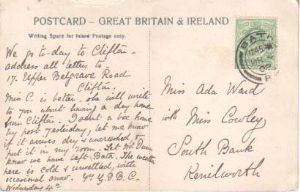 POSTCARD – GREAT BRITAIN & IRELAND
Writing Space for Inland Postage only.
We go to-day to Clifton.
address all letters to
17. Upper Belgrave Road
Clifton.
Miss C. is better, she will write
to you when having a day home
from Clifton. I sent a box home
by post yesterday, let me know
if it arrives safely & unarrived
put it in my room. Let Mr
know we have left Bath. The weather
here is cold & unsettled, with
occasional
Wednesday 4th
BATH
Miss Ada Ward
with Miss Cowley
South Bank
Kenilworth